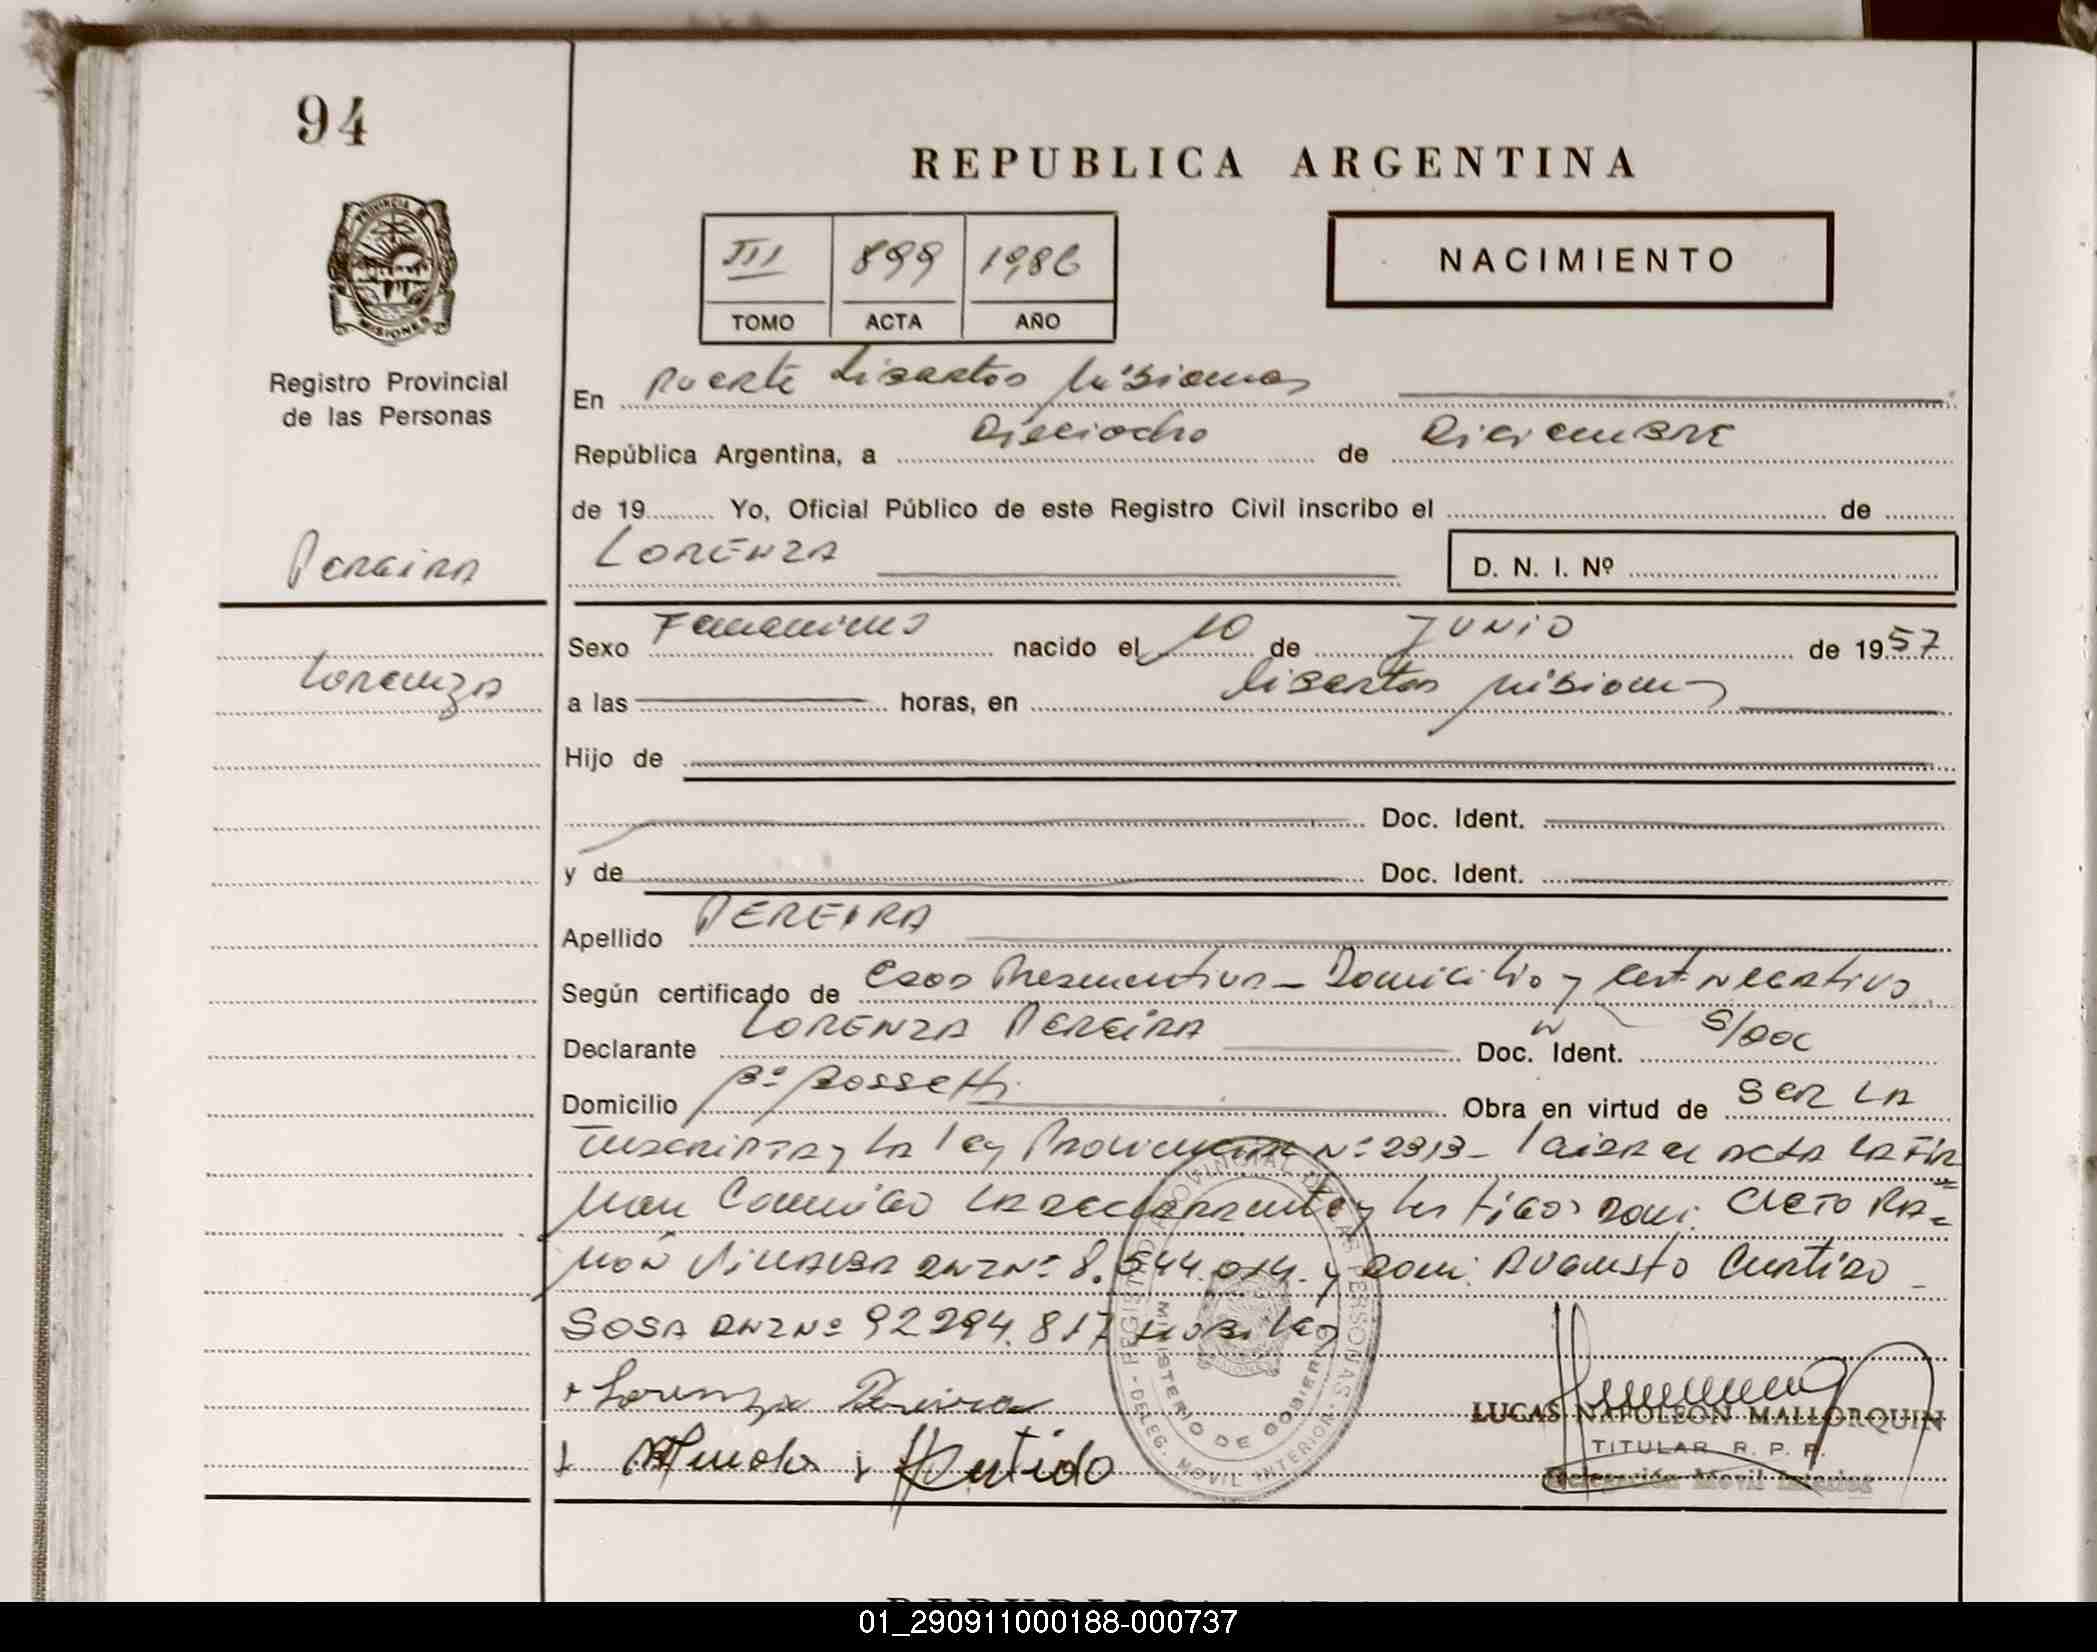 94
REPUBLICA ARGENTINA
PROVINCIA
MISIONES
III 899 1986
TOMO ACTA AÑO
NACIMIENTO
Registro Provincial
de las Personas
En Puerto Libertad Misiones
República Argentina, a Dieciocho de Diciembre
de 19 Yo, Oficial Público de este Registro Civil inscribo el de
Pereira
LORENZA
D. N. I. Nº
Sexo Femenino nacido el 10 de JUNIO de 1957
Lorenza
a las horas, en Libertad Misiones
Hijo de
Doc. Ident.
y de Doc. Ident.
Apellido PEREIRA
Según certificado de Edad Presuntiva - Domicilio y Cert Negativo
Declarante LORENZA PEREIRA Doc. Ident. S/Doc
Domicilio Bº Rossetti Obra en virtud de SER LA
Inscripta y la ley Provincial Nº 2313 - Leida el Acta la Fir
man Conmigo la declarante y testigos Don: CLETO RA=
MÓN VILLALBA DNI Nº 8.544.014. y Don: Augusto Curtido
SOSA DNI Nº 92294.817 habiles
Lorenza Pereira
Curtido
REGISTRO PROVINCIAL DE LAS PERSONAS
MINISTERIO DE GOBIERNO
DELEG. MOVIL INTERIOR
LUCAS NAPOLEON MALLORQUIN
TITULAR R. P. P.
Delegación Movil Interior
01_290911000188-000737